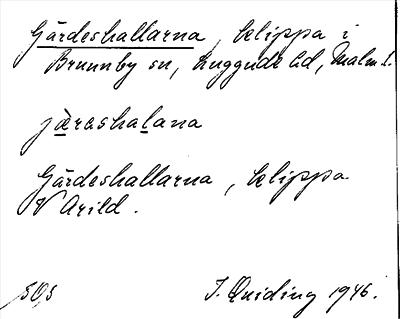 Gärdeshallarna, klippa i
Brunnby sn, Luggude hd, Malm. l.
jæreshalana
Gärdeshallarna, klippa
V Arild.
SOS
I. Quiding 1946.